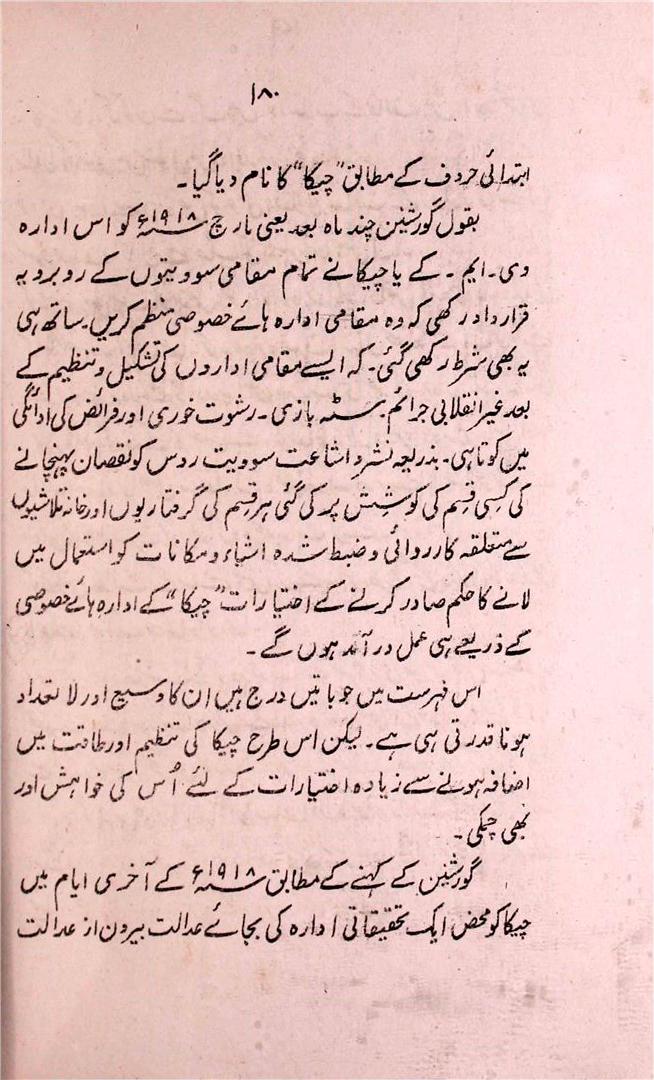 ۱۸۰
ابتدائی حروف کے مطابق "چیکا" کا نام دیا گیا۔
بقول گورشنین چند ماہ بعد یعنی مارچ ۱۹۱۸ء کو اس ادارہ
وی۔ ایم۔ کے یا چیکا نے تمام مقامی سوویتوں کے روبرو یہ
قرارداد رکھی کہ وہ مقامی ادارہ ہائے خصوصی منظم کریں۔ ساتھ ہی
یہ بھی شرط رکھی گئی۔ کہ ایسے مقامی اداروں کی تشکیل و تنظیم کے
بعد غیر انقلابی جرائم۔ سٹہ بازی۔ رشوت خوری اور فرائض کی ادائگی
میں کوتاہی۔ بذریعہ نشر و اشاعت سوویت روس کو نقصان پہنچانے
کی کسی قسم کی کوشش پر کی گئی ہر قسم کی گرفتاریوں اور خانہ تلاشیوں
سے متعلقہ کارروائی و ضبط شدہ اشیاء و مکانات کو استعمال میں
لانے کا حکم صادر کرنے کے اختیارات "چیکا" کے ادارہ ہائے خصوصی
کے ذریعے ہی عمل درآمد ہوں گے۔
اس فہرست میں جو باتیں درج ہیں ان کا وسیع اور لاتعداد
ہونا قدرتی ہی ہے۔ لیکن اس طرح چیکا کی تنظیم اور طاقت میں
اضافہ ہونے سے زیادہ اختیارات کے لئے اُس کی خواہش اور
بھی چمکی۔
گورشنین کے کہنے کے مطابق ۱۹۱۸ء کے آخری ایام میں
چیکا کو محض ایک تحقیقاتی ادارہ کی بجائے عدالت بیرون از عدالت